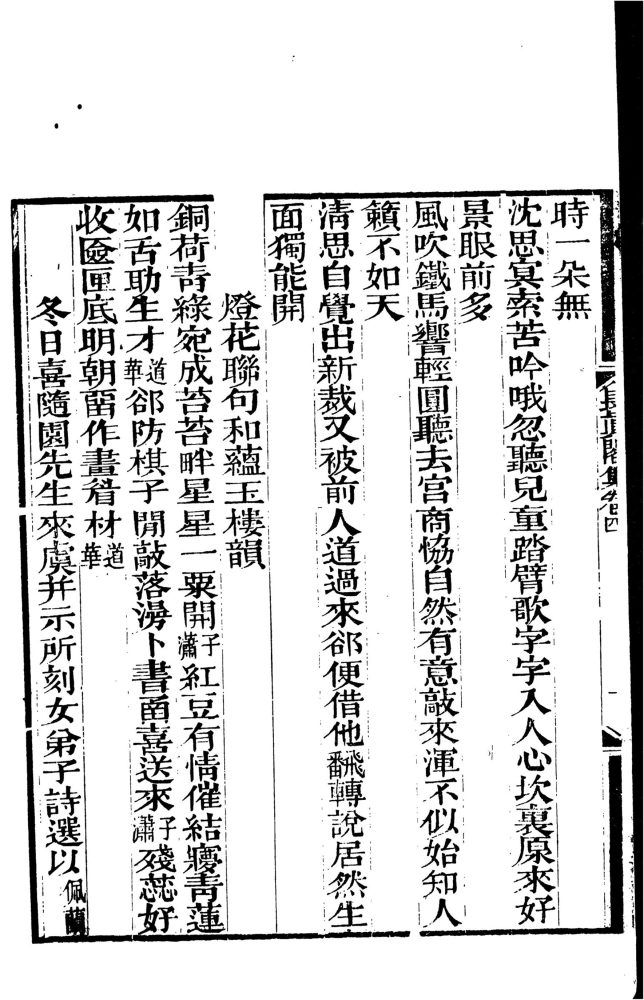 時一朶無
沈思冥索苦吟哦忽聽兒童踏臂歌字字入人心坎裏原來好
景眼前多
風吹鐵馬響輕圓聽去宮商恊自然有意敲來渾不似始知人
籟不如天
淸思自覺出新裁又被前人道過來郤便借他翻轉說居然生
面獨能開
燈花聯句和蘊玉樓韻
銅荷靑綠宛成苔苔畔星星一粟開子瀟紅豆有情催結䕼靑蓮
如舌助生才道華郤防棋子閒敲落漫卜書函喜送來子瀟殘蕊好
收奩匣底明朝留作畫眉材道華
冬日喜隨園先生來虞幷示所刻女弟子詩選以佩蘭
長眞閣集卷四